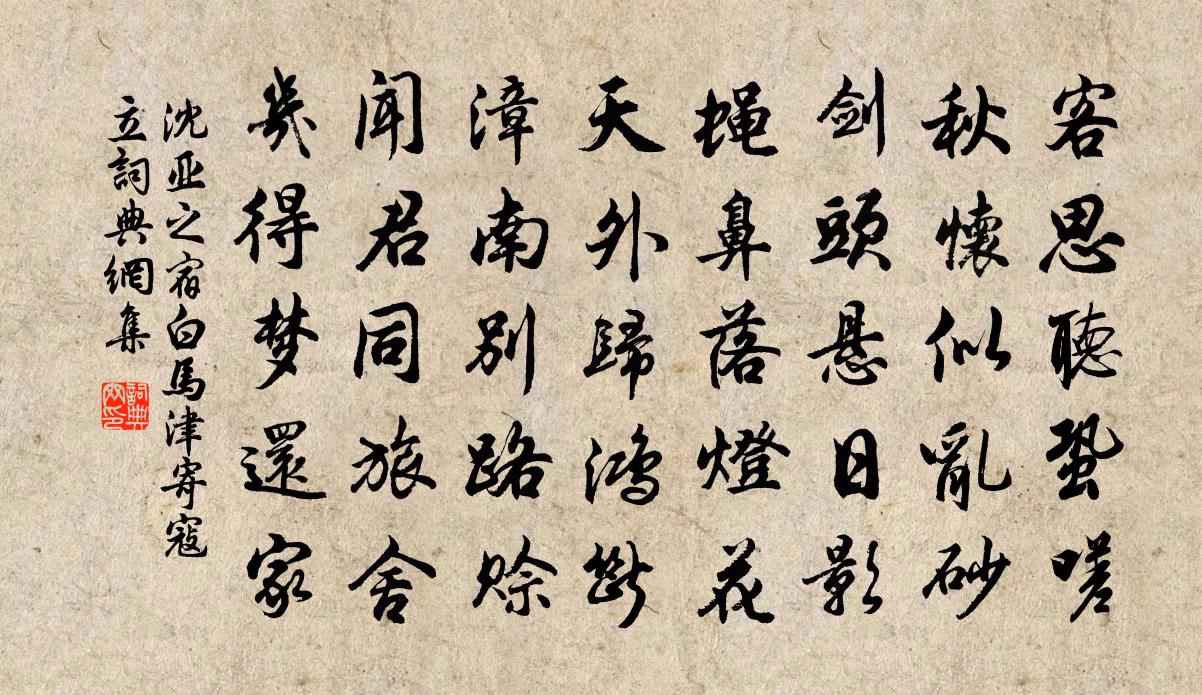 客思聽蛩嗟
秋懷似亂砂
劍頭懸日影
蝇鼻落燈花
天外歸鴻斷
漳南別路賒
闻君同旅舍
幾得梦還家
沈亚之宿白馬津寄寇
立詞典網集
詞典网印